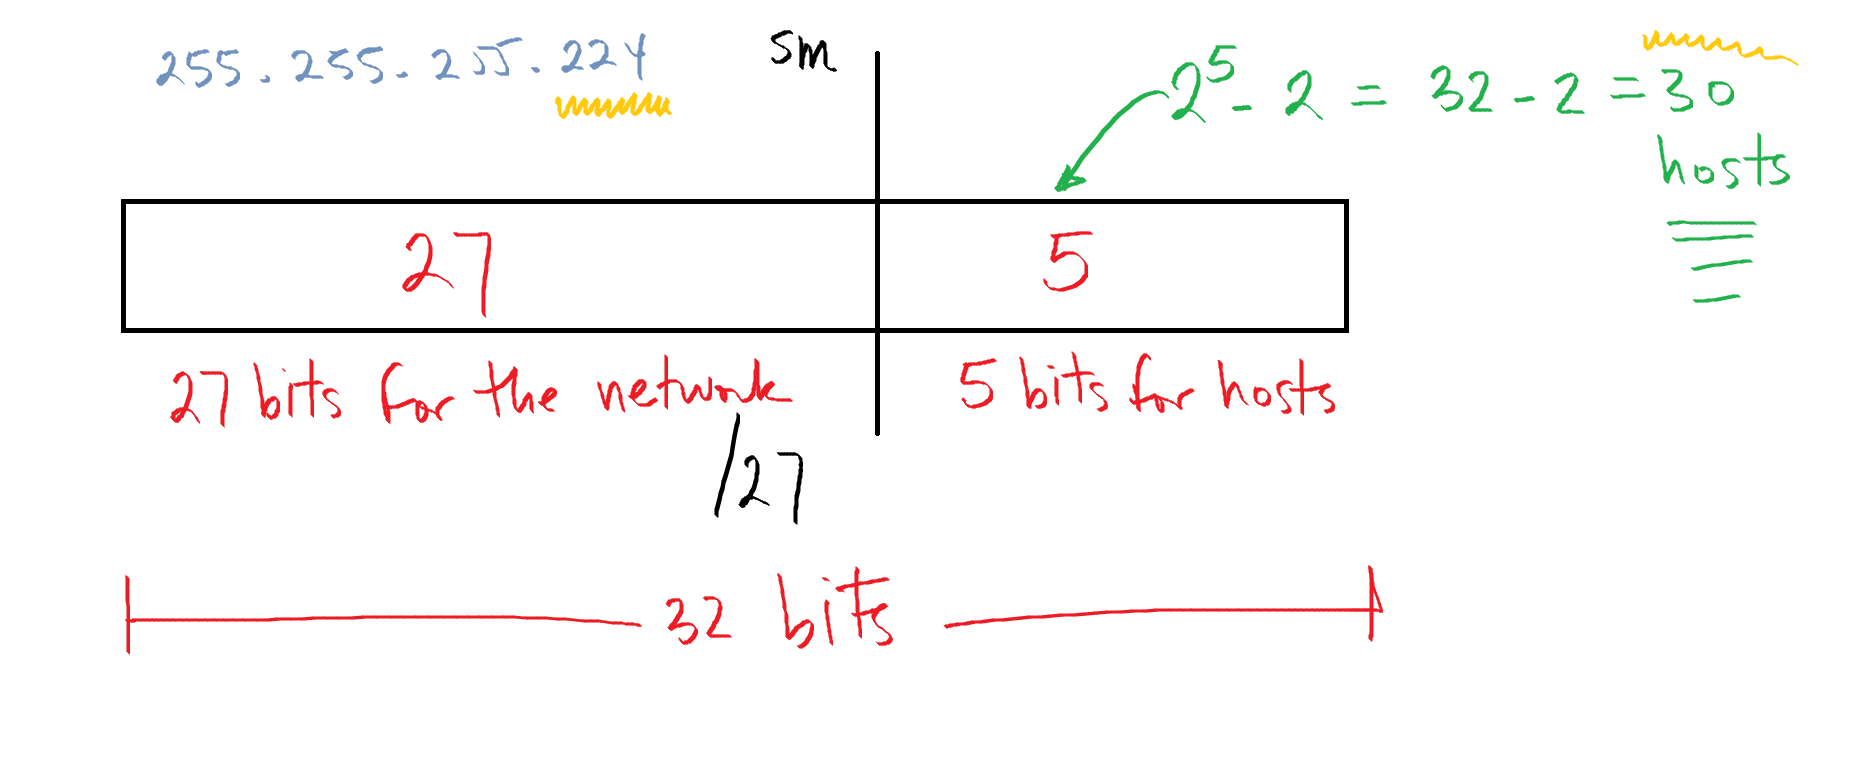 255.255.255.224
sm
2⁵ - 2 = 32 - 2 = 30
hosts
27
5
27 bits for the network
5 bits for hosts
/27
32 bits